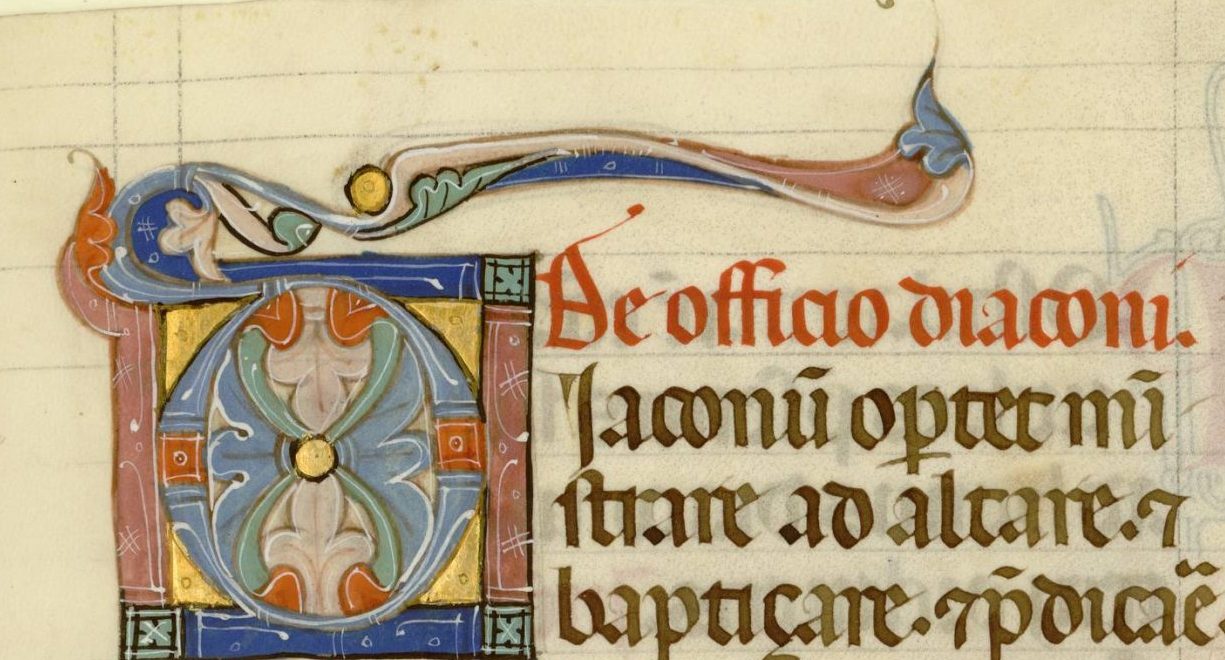 De officio diaconi.
Diaconū oꝑtet mī
strare ad altare. ⁊
bapticare. ⁊ p̄dicaē.